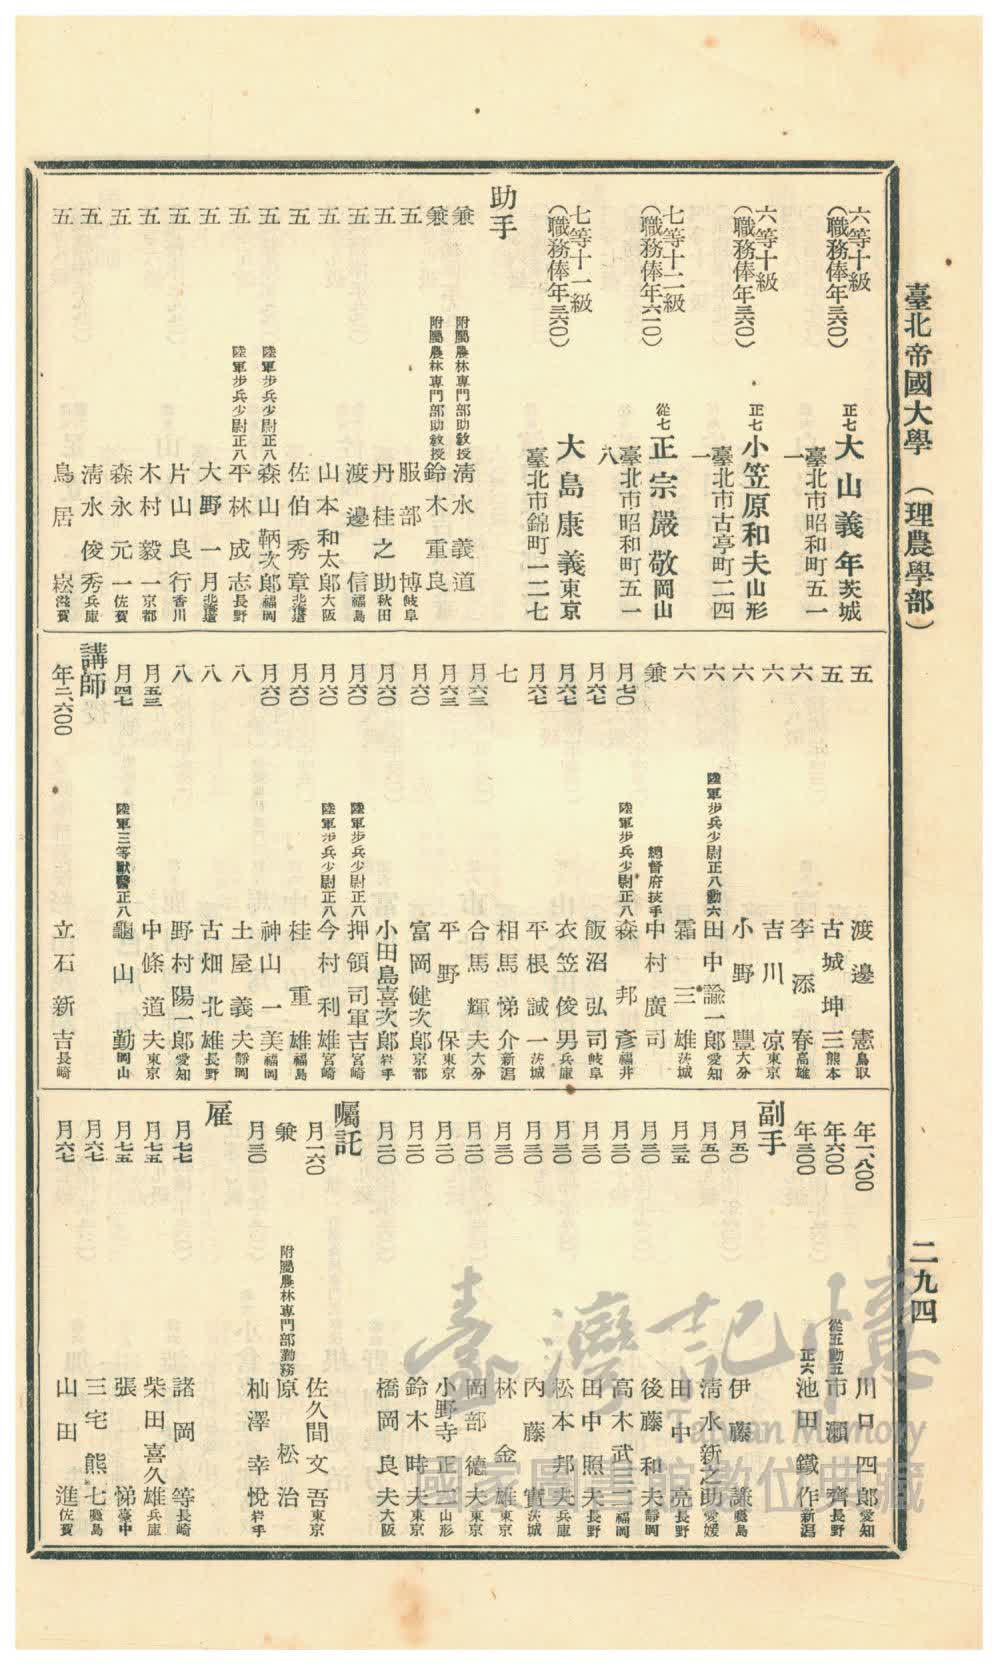 臺北帝國大學 (理農學部)
二九四
六等十級
(職務俸年三六〇)
正七 大山義年 茨城
臺北市昭和町五一一
六等十級
(職務俸年三六〇)
正七 小笠原和夫 山形
臺北市古亭町二四一
七等十二級
(職務俸年六一〇)
從七 正宗嚴敬 岡山
臺北市昭和町五一八
七等十一級
(職務俸年三六〇)
大島康義 東京
臺北市錦町一二七
助手
兼 附屬農林專門部助教授 淸水義道
兼 附屬農林專門部助教授 鈴木重良
五 服部博 岐阜
五 丹桂之助 秋田
五 渡邊信 福島
五 山本和太郞 大阪
五 佐伯秀章 北海道
五 陸軍步兵少尉正八 森山鞆次郞 福岡
五 陸軍步兵少尉正八 平林成志 長野
五 大野一月 北海道
五 片山良行 香川
五 木村毅一 京都
五 森永元一 佐賀
五 淸水俊秀 兵庫
五 鳥居崧 滋賀
五 渡邊憲 鳥取
五 古城坤三 熊本
六 李添春 高雄
六 吉川凉 東京
六 小野豐 大分
六 陸軍步兵少尉正八勳六 田中諭一郞 愛知
六 霜三雄 茨城
兼 總督府技手 中村廣司
月七〇 陸軍步兵少尉正八 森邦彥 福井
月六七 飯沼弘司 岐阜
月六七 衣笠俊男 兵庫
月六七 平根誠一 茨城
七 相馬悌介 新潟
月六三 合馬輝夫 大分
月六三 平野保 東京
月六〇 富岡健次郞 京都
月六〇 小田島喜次郞 岩手
月六〇 陸軍步兵少尉正八 押領司軍吉 宮崎
月六〇 陸軍步兵少尉正八 今村利雄 宮崎
月六〇 桂重雄 福島
月六〇 神山一美 福岡
八 土屋義夫 靜岡
八 古畑北雄 長野
八 野村陽一郞 愛知
月五三 中條道夫 東京
月四七 陸軍三等獸醫正八 龜山勤 岡山
講師
年二、六〇〇 立石新吉 長崎
年一、八〇〇 川口四郞 愛知
年六〇〇 從五勳五 市瀨齊 長野
年三〇〇 正六 池田鐵作 新潟
副手
月五〇 伊藤謙 廣島
月五〇 淸水新之助 愛媛
月三五 田中亮 長野
月三〇 後藤和夫 靜岡
月三〇 高木武三 福岡
月三〇 田中照夫 長野
月三〇 松本邦夫 兵庫
月三〇 內藤實 茨城
月三〇 林金雄 東京
月三〇 岡部德夫 東京
月三〇 小野寺正二 山形
月二〇 鈴木時夫 東京
月二〇 橋岡良夫 大阪
囑託
月一六〇 佐久間文吾 東京
兼 附屬農林專門部勤務 原松治
月三〇 杣澤幸悅 岩手
雇
月七七 諸岡等 長崎
月七五 柴田喜久雄 兵庫
月七五 張悌 臺中
月六七 三宅熊七 廣島
月六七 山田進 佐賀
臺灣記憶
Taiwan Memory
國家圖書館數位典藏